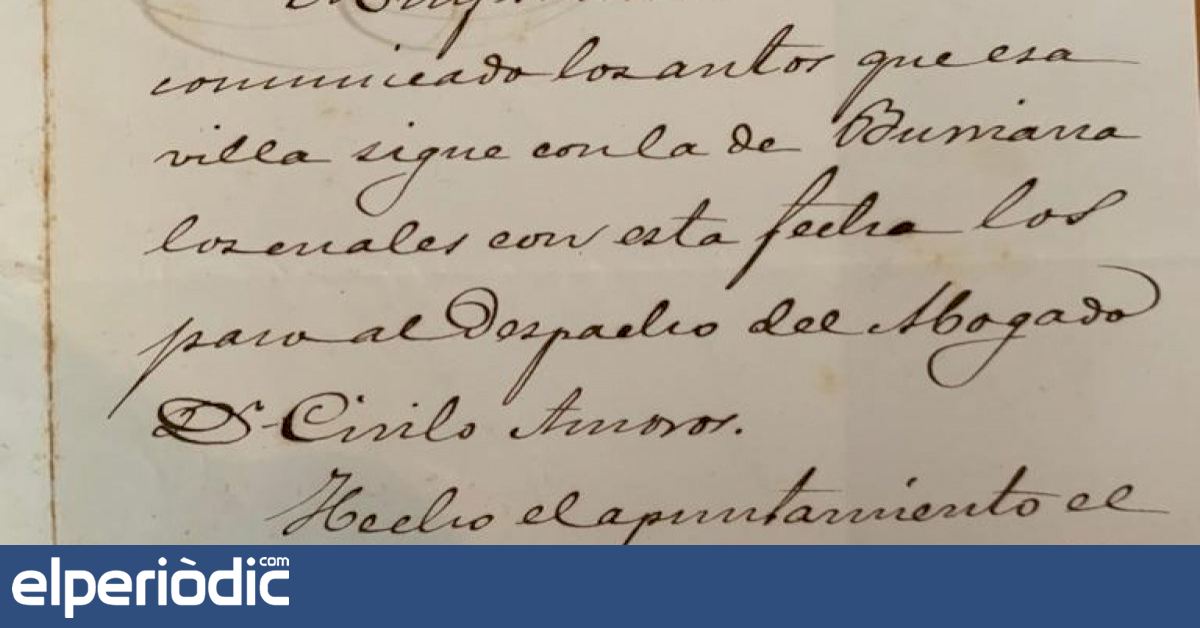 comunicado los autos que esa
villa sigue con la de Burriana
los cuales con esta fecha los
paso al Despacho del Abogado
Dn. Cirilo Amoros.
Hecho el apuntamiento el
elperiòdic.com